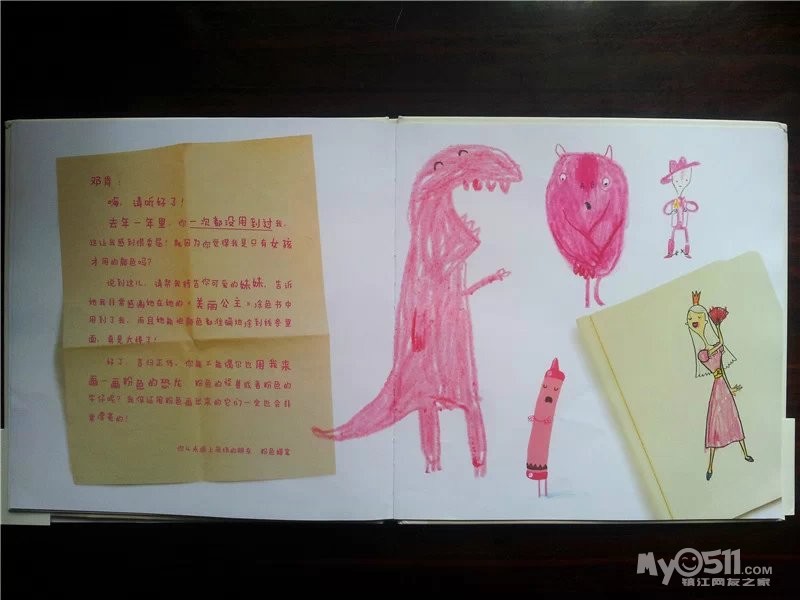 邓肯：
嗨，请听好了！
去年一年里，你一次都没用到过我，
这让我感到很委屈！就因为你觉得我是只有女孩
才用的颜色吗？
说到这儿，请帮我转告你可爱的妹妹，告诉
她我非常感谢她在她的《美丽公主》涂色书中
用到了我，而且她能把颜色都准确地涂到线条里
面，真是太棒了！
好了，言归正传，你能不能偶尔也用我来
画一画粉色的恐龙、粉色的怪兽或者粉色的
牛仔呢？我保证用粉色画出来的它们一定也会非
常漂亮的！
粉色蜡笔
My0511.COM
镇江网友之家